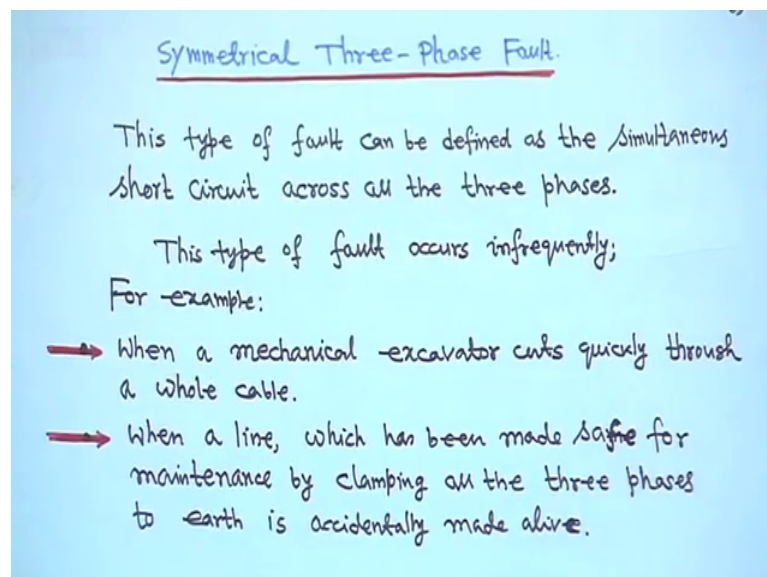 Symmetrical Three-Phase Fault.
This type of fault can be defined as the simultaneous
short circuit across all the three phases.
This type of fault occurs infrequently;
For example:
When a mechanical excavator cuts quickly through
a whole cable.
When a line, which has been made safe for
maintenance by clamping all the three phases
to earth is accidentally made alive.